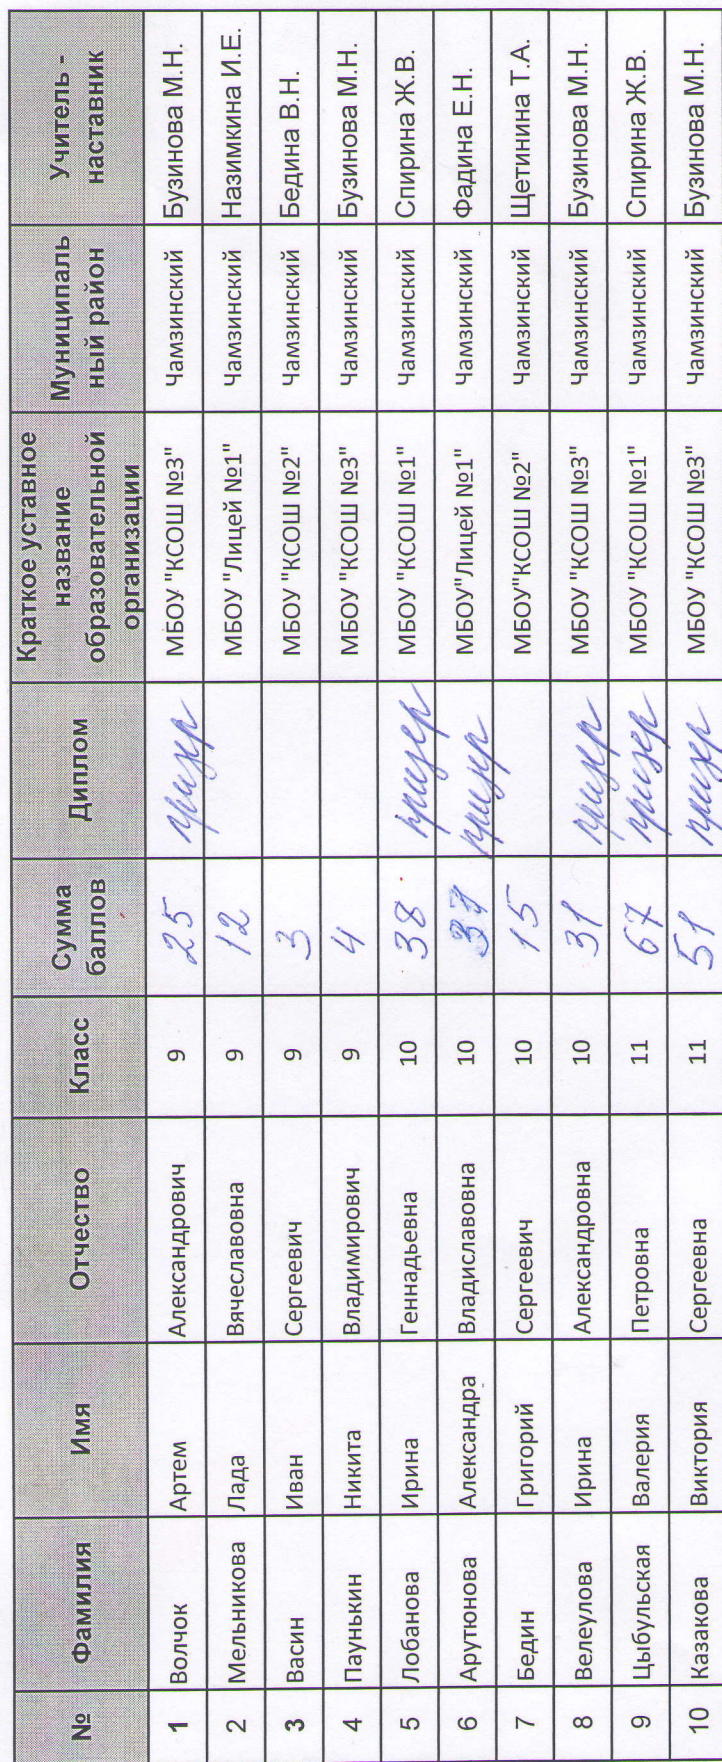 № Фамилия Имя Отчество Класс Сумма баллов Диплом Краткое уставное название образовательной организации Муниципаль ный район Учитель - наставник
1 Волчок Артем Александрович 9 25 призер МБОУ "КСОШ №3" Чамзинский Бузинова М.Н.
2 Мельникова Лада Вячеславовна 9 12 МБОУ "Лицей №1" Чамзинский Назимкина И.Е.
3 Васин Иван Сергеевич 9 3 МБОУ "КСОШ №2" Чамзинский Бедина В.Н.
4 Паунькин Никита Владимирович 9 4 МБОУ "КСОШ №3" Чамзинский Бузинова М.Н.
5 Лобанова Ирина Геннадьевна 10 38 призер МБОУ "КСОШ №1" Чамзинский Спирина Ж.В.
6 Арутюнова Александра Владиславовна 10 37 призер МБОУ"Лицей №1" Чамзинский Фадина Е.Н.
7 Бедин Григорий Сергеевич 10 15 МБОУ"КСОШ №2" Чамзинский Щетинина Т.А.
8 Велеулова Ирина Александровна 10 31 призер МБОУ "КСОШ №3" Чамзинский Бузинова М.Н.
9 Цыбульская Валерия Петровна 11 67 призер МБОУ "КСОШ №1" Чамзинский Спирина Ж.В.
10 Казакова Виктория Сергеевна 11 51 призер МБОУ "КСОШ №3" Чамзинский Бузинова М.Н.